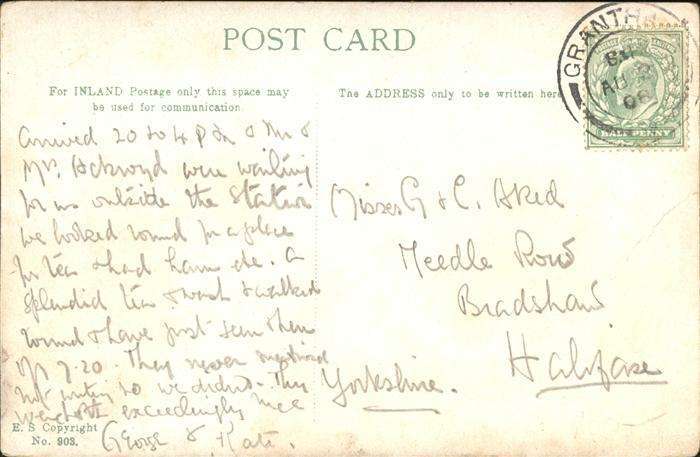 POST CARD
For INLAND Postage only this space may
be used for communication.
The ADDRESS only to be written here
GRANTH
AU
06
HALF PENNY
arrived 20 to 4 pm & Mr &
Mrs. Ackroyd were waiting
for us outside the Station
we looked round for a place
for tea & had ham etc. a
splendid tea & went & walked
round & have just seen them
off 7-20. They never mentioned
not writing so we didn't. They
were both exceedingly nice
George & Kate.
Misses G & C. Aked
Needle Row
Bradshaw
Halifax
Yorkshire.
E. S Copyright
No. 903.